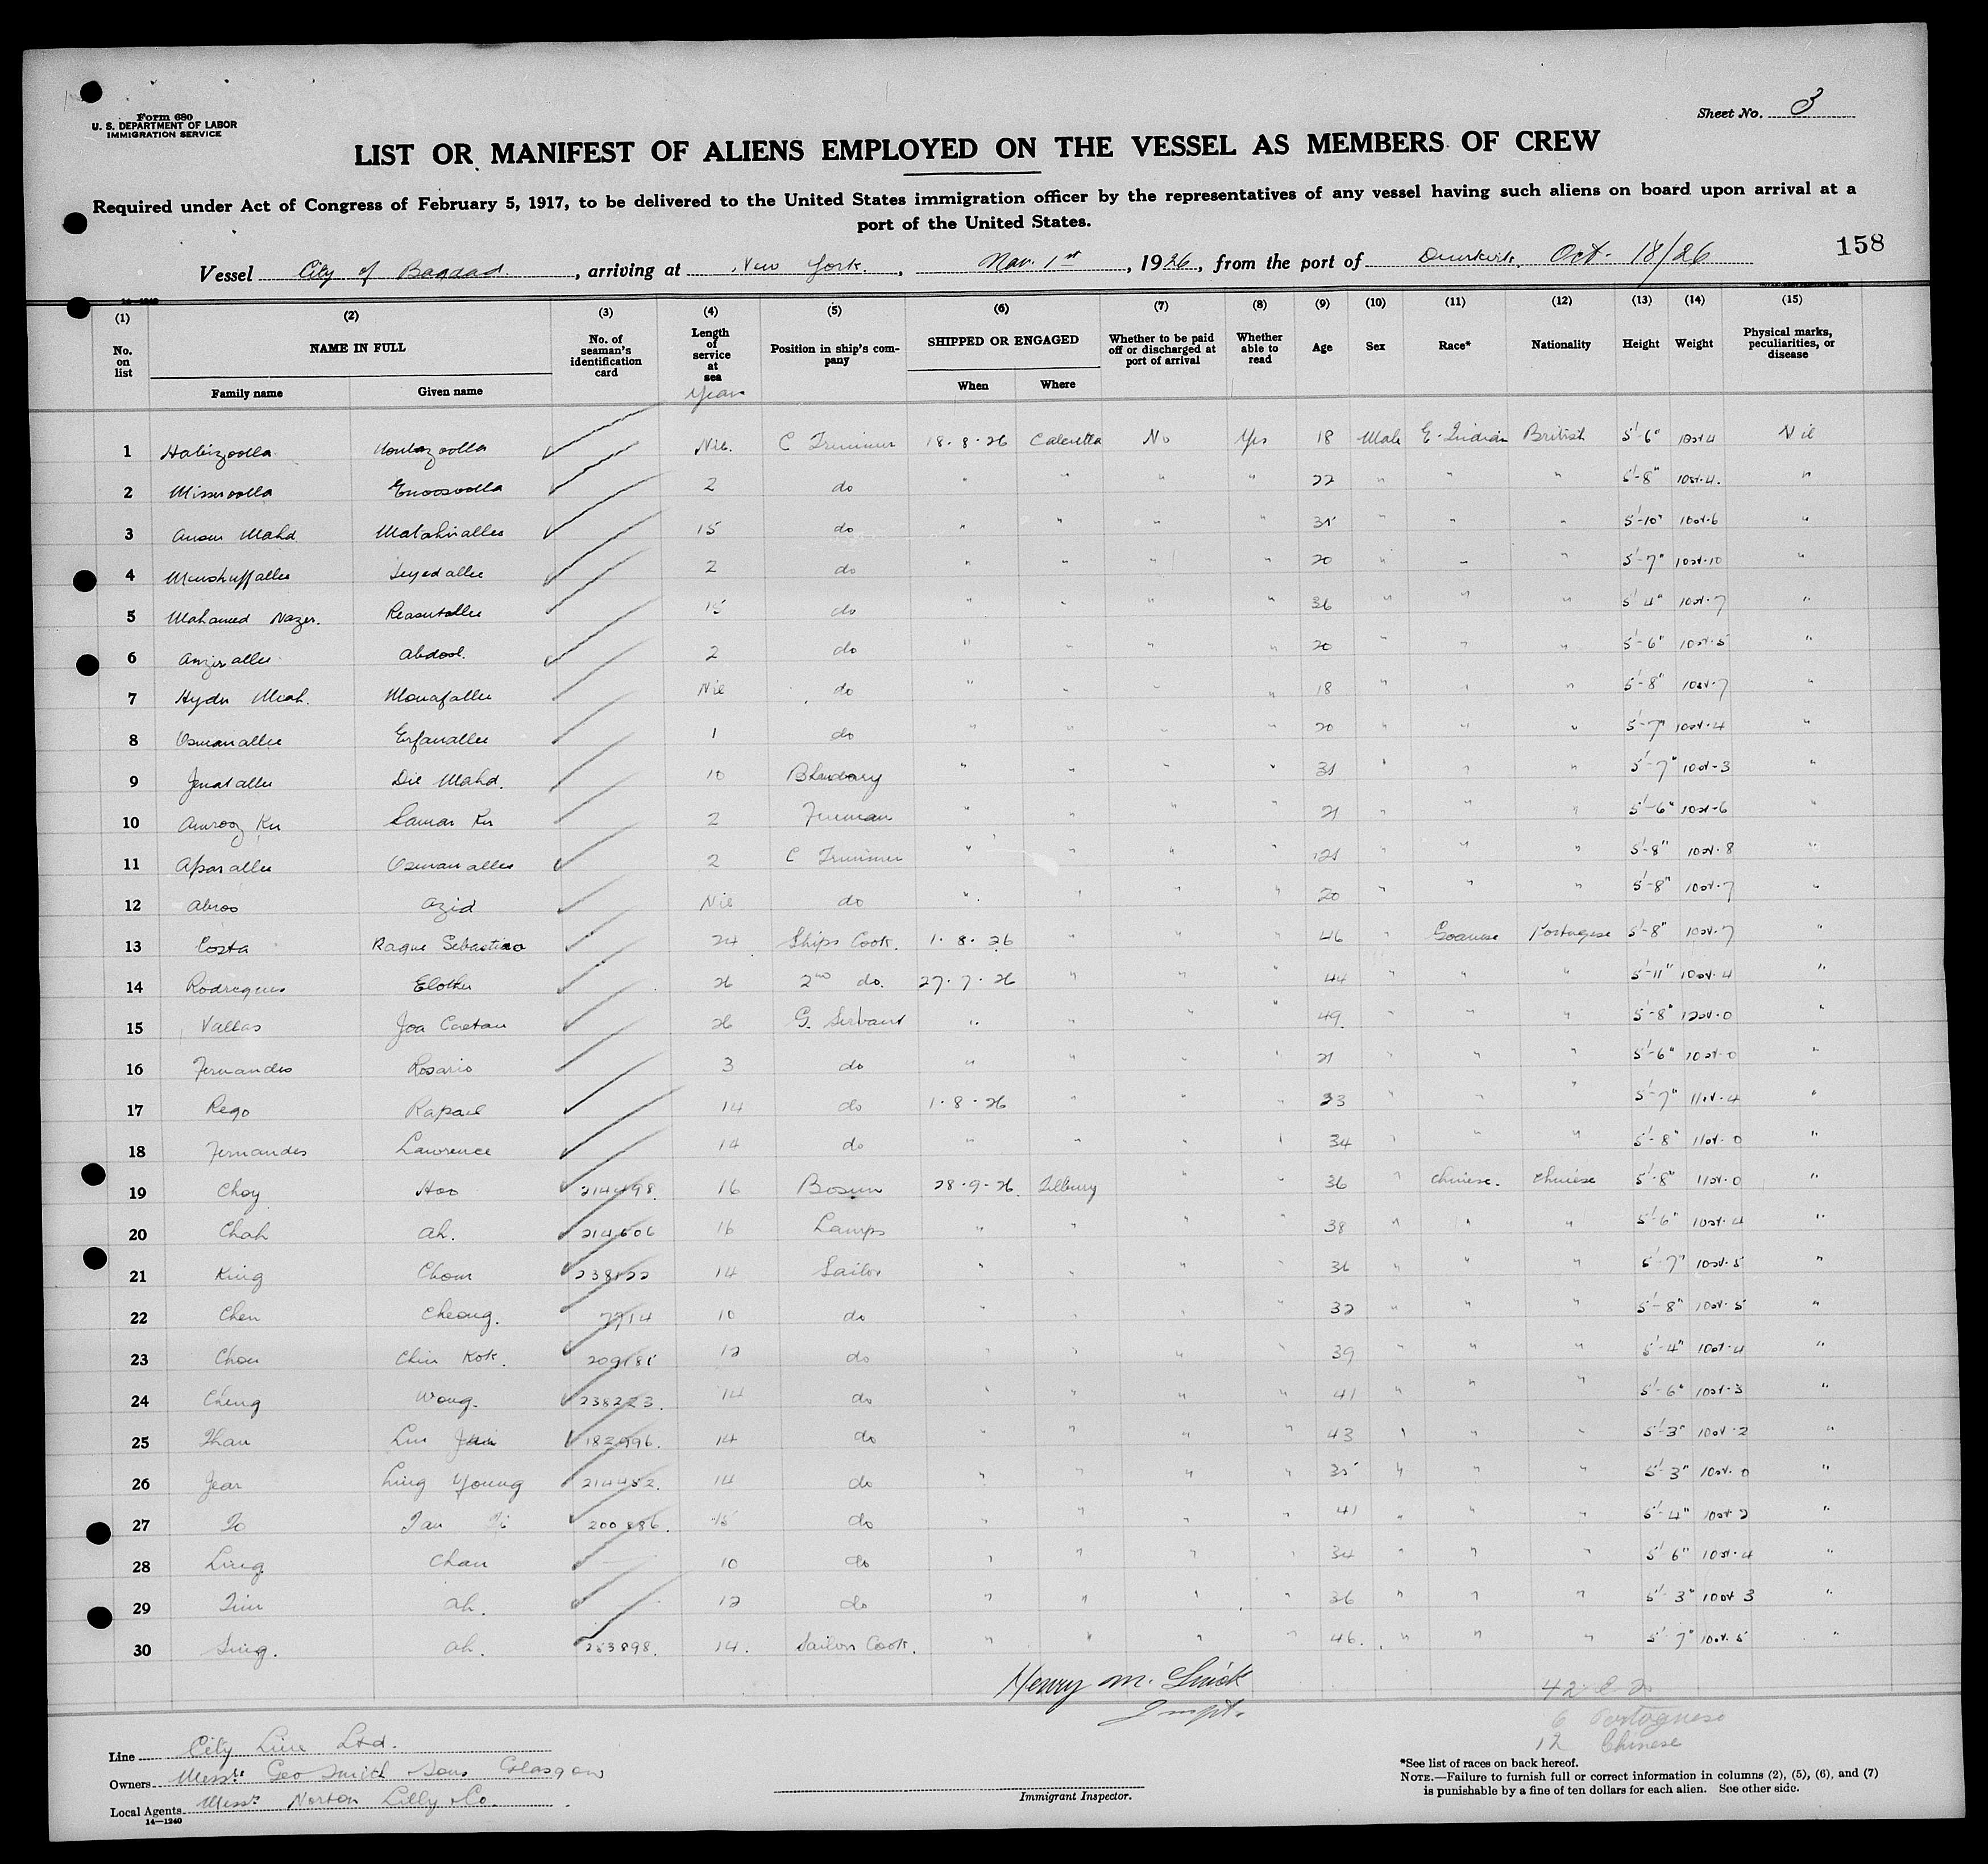 Form 680
U. S. DEPARTMENT OF LABOR
IMMIGRATION SERVICE
Sheet No. 3
LIST OR MANIFEST OF ALIENS EMPLOYED ON THE VESSEL AS MEMBERS OF CREW
Required under Act of Congress of February 5, 1917, to be delivered to the United States immigration officer by the representatives of any vessel having such aliens on board upon arrival at a
port of the United States.
158
Vessel City of Bagdad, arriving at New York, Nov. 1st, 1926, from the port of Dunkirk, Oct. 18/26
(1) (2) (3) (4) (5) (6) (7) (8) (9) (10) (11) (12) (13) (14) (15)
No. on list NAME IN FULL Family name Given name No. of seaman's identification card Length of service at sea Years Position in ship's company SHIPPED OR ENGAGED When Where Whether to be paid off or discharged at port of arrival Whether able to read Age Sex Race* Nationality Height Weight Physical marks, peculiarities, or disease
1 Habizoolla Nil. C Trimmer 18.8.26 Calcutta No Yes 18 Male E. Indian British 5'-6" 10st 4 Nil
2 Enoosoolla 2 do " " " " 22 " " " 5'-8" 10st.4. "
3 Mahd 15 do " " " " 35 " " " 5'-10" 10st.6 "
4 2 do " " " " 20 " " " 5'-7" 10st.10 "
5 Mahomed Nazer. 15 do " " " " 36 " " " 5'-4" 10st.7 "
6 Abdool. 2 do " " " " 20 " " " 5'-6" 10st.5 "
7 Hyder Meah. Monafallee Nil do " " " " 18 " " " 5'-8" 10st.7 "
8 Osmanallee Erfanallee 1 do " " " " 20 " " " 5'-7" 10st.4 "
9 Jenatallee Mahd. 10 Bhndary " " " " " " " 5'-7" 10st-3 "
10 2 Fireman " " " " 21 " " " 5'-6" 10st-6 "
11 Aparallee Osmanallee 2 C Trimmer " " " " " " " 5'-8" 10st.8 "
12 Abroo Azid Nil do " " " " 20 " " " 5'-8" 10st.7 "
13 Costa Roque Sebastiao 24 Ships Cook. 1.8.26 " " " 46 " Goanese Portugese 5'-8" 10st.7 "
14 Rodregues 26 2nd do. 27.7.26 " " " 44 " " " 5'-11" 10st.4 "
15 Vallas Joa Caetan 26 G. Servant " " " " 49. " " " 5'-8" 12st.0 "
16 Fernandes Rosario 3 do " " " " 21 " " " 5'-6" 10st.0 "
17 Rego Rapael 14 do 1.8.26 " " " 33 " " " 5'-7" 11st.4 "
18 Fernandes Lawrence 14 do " " " " 34 " " " 5'-8" 11st.0 "
19 Choy Hoo 214498. 16 Bosun 28.9-26. Tilbury " " 36 " Chinese. Chinese 5'-8" 11st.0 "
20 Chah Ah. 214606 16 Lamps " " " " 38 " " " 5'-6" 10st.4 "
21 King Chom 238122 14 Sailor " " " " 36 " " " 5'-7" 10st.5 "
22 Chen Cheong. 7714 10 do " " " " 32 " " " 5'-8" 10st.5 "
23 Chou Chin Kok. 12 do " " " " 39 " " " 5'-4" 10st.4 "
24 Cheng Wong. 238223. 14 do " " " " 41 " " " 5'-6" 10st.3 "
25 182996. 14 do " " " " 43 " " " 5'-3" 10st.2 "
26 Jear Ling Young 214452. 14 do " " " " 35 " " " 5'-3" 10st.0 "
27 200886. 15 do " " " " 41 " " " 5'-4" 10st 2 "
28 Ling Chan 10 do " " " " 34 " " " 5'-6" 10st.4 "
29 Ah. 12 do " " " " 36 " " " 5'-3" 10st 3 "
30 Ah. 253898. 14. Sailors Cook. " " " " 46. " " " 5'-7" 10st.5 "
Henry M.
Inspt.
42 E. In
6 Portuguese
12 Chinese
Line City Line Ltd.
Owners Messrs Geo Smith & Sons Glasgow
Local Agents Messrs Norton Lilly & Co.
14—1240
Immigrant Inspector.
*See list of races on back hereof.
NOTE.—Failure to furnish full or correct information in columns (2), (5), (6), and (7)
is punishable by a fine of ten dollars for each alien. See other side.